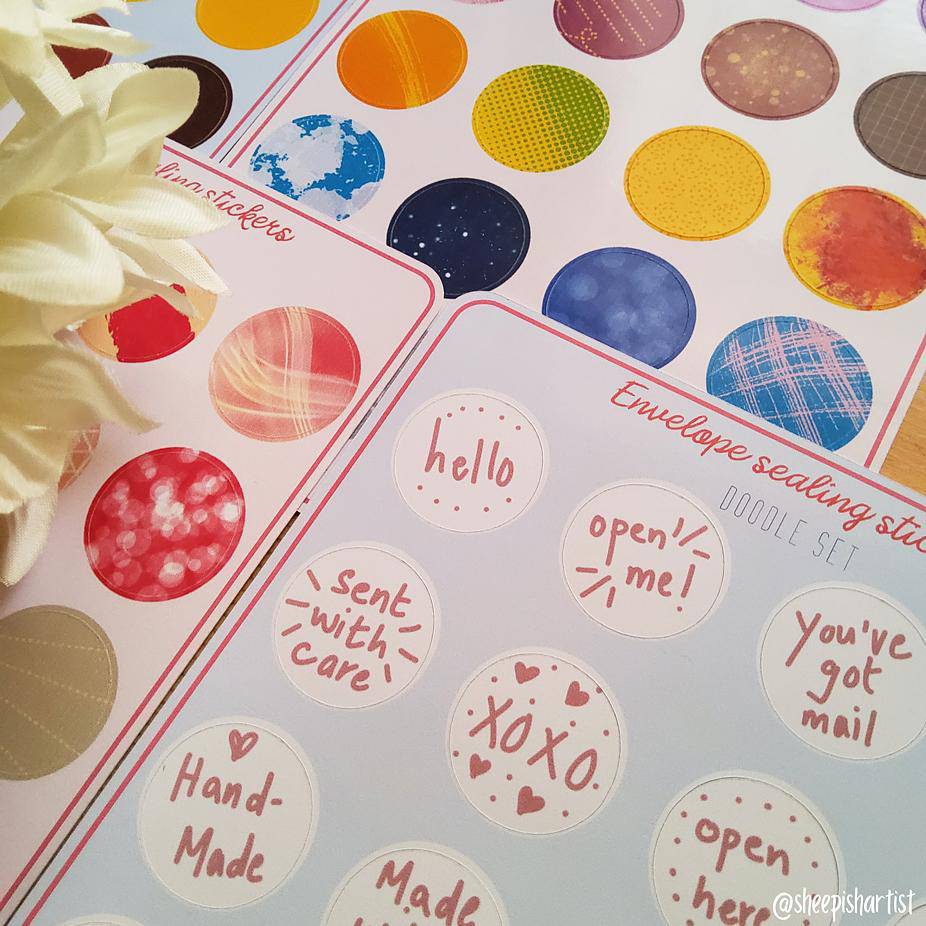 stickers
Envelope sealing
DOODLE SET
hello
open
me!
sent
with
care
You've
got
mail
XOXO
Hand-
Made
open
here
Made
@sheepishartist